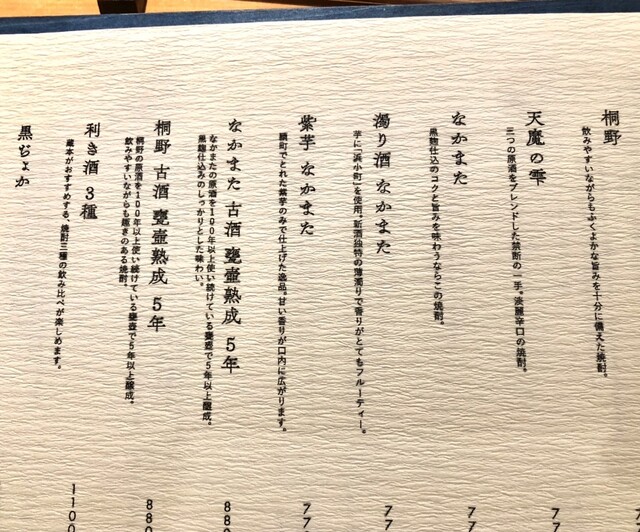 桐野
飲みやすいながらもふくよかな旨みを十分に備えた焼酎。
天魔の雫
三つの原酒をブレンドした禁断の一手。淡麗辛口の焼酎。
77
なかまた
黒麹仕込のコクと旨みを味わうならこの焼酎。
77
濁り酒 なかまた
芋に「浜小町」を使用。新酒独特の薄濁りで香りがとてもフルーティー。
77
紫芋 なかまた
鯛町でとれた紫芋のみで仕上げた逸品。甘い香りが口内に広がります。
77
なかまた 古酒 甕壷熟成 5年
なかまたの原酒を100年以上使い続けている甕壷で5年以上醸成。
黒麹仕込みのしっかりとした味わい。
880
桐野 古酒 甕壷熟成 5年
桐野の原酒を100年以上使い続けている甕壷で5年以上醸成。
飲みやすいながらも極きのある焼酎。
880
利き酒 3種
蔵本がおすすめする、焼酎三種の飲み比べが楽しめます。
1100
黒ぢょか